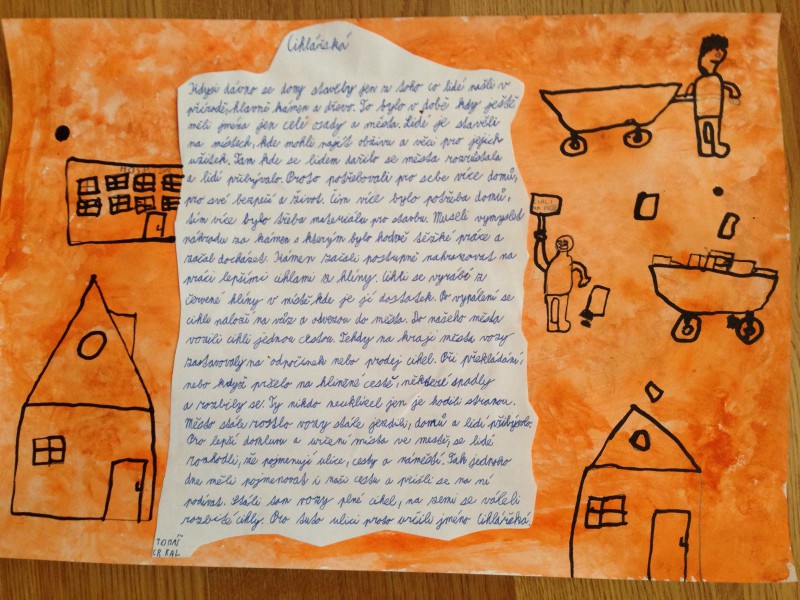 Ciklářská
Kdysi dávno se domy stavěly jen z toho co lidé našli v
přírodě, hlavně kámen a dřevo. To bylo v době kdy ještě
měli jména jen celé osady a města. Lidé je stavěli
na místech, kde mohli najít obživu a věci pro jejich
užitek. Tam kde se lidem dařilo se města rozrůstala
a lidí přibývalo. Proto potřebovali pro sebe více domů,
pro své bezpečí a život. Čím více bylo potřeba domů,
tím více bylo třeba materiálu pro stavbu. Museli vymyslet
náhradu za kámen s kterým bylo hodně těžké práce a
začal docházet. Kámen začali postupně nahrazovat na
práci lepšími cihlami z hlíny. Cikli se vyrábě z
červené hlíny v místě kde je jí dostatek. Po vypálení se
cikle naloží na vůz a odvezou do města. Do našeho města
vozili cikli jednou cestou. Tehdy na kraji města vozy
zastavovaly na odpočinek nebo prodej cikel. Při překládání,
nebo když pršelo na hliněné cestě, některé spadly
a rozbily se. Ty nikdo neuklízel jen je hodili stranou.
Město stále rostlo vozy stále jezdili, domů a lidí přibývalo.
Pro lepší domluvu a určení místa ve městě, se lidé
rozhodli, že pojmenují ulice, cesty a náměstí. Tak jednoho
dne měli pojmenovat i naši cestu a přišli se na ní
podívat. Stáli tam vozy plné cikel, na zemi se váleli
rozbité cikly. Pro tuto ulici proto určili jméno Ciklářská
TOMÁŠ